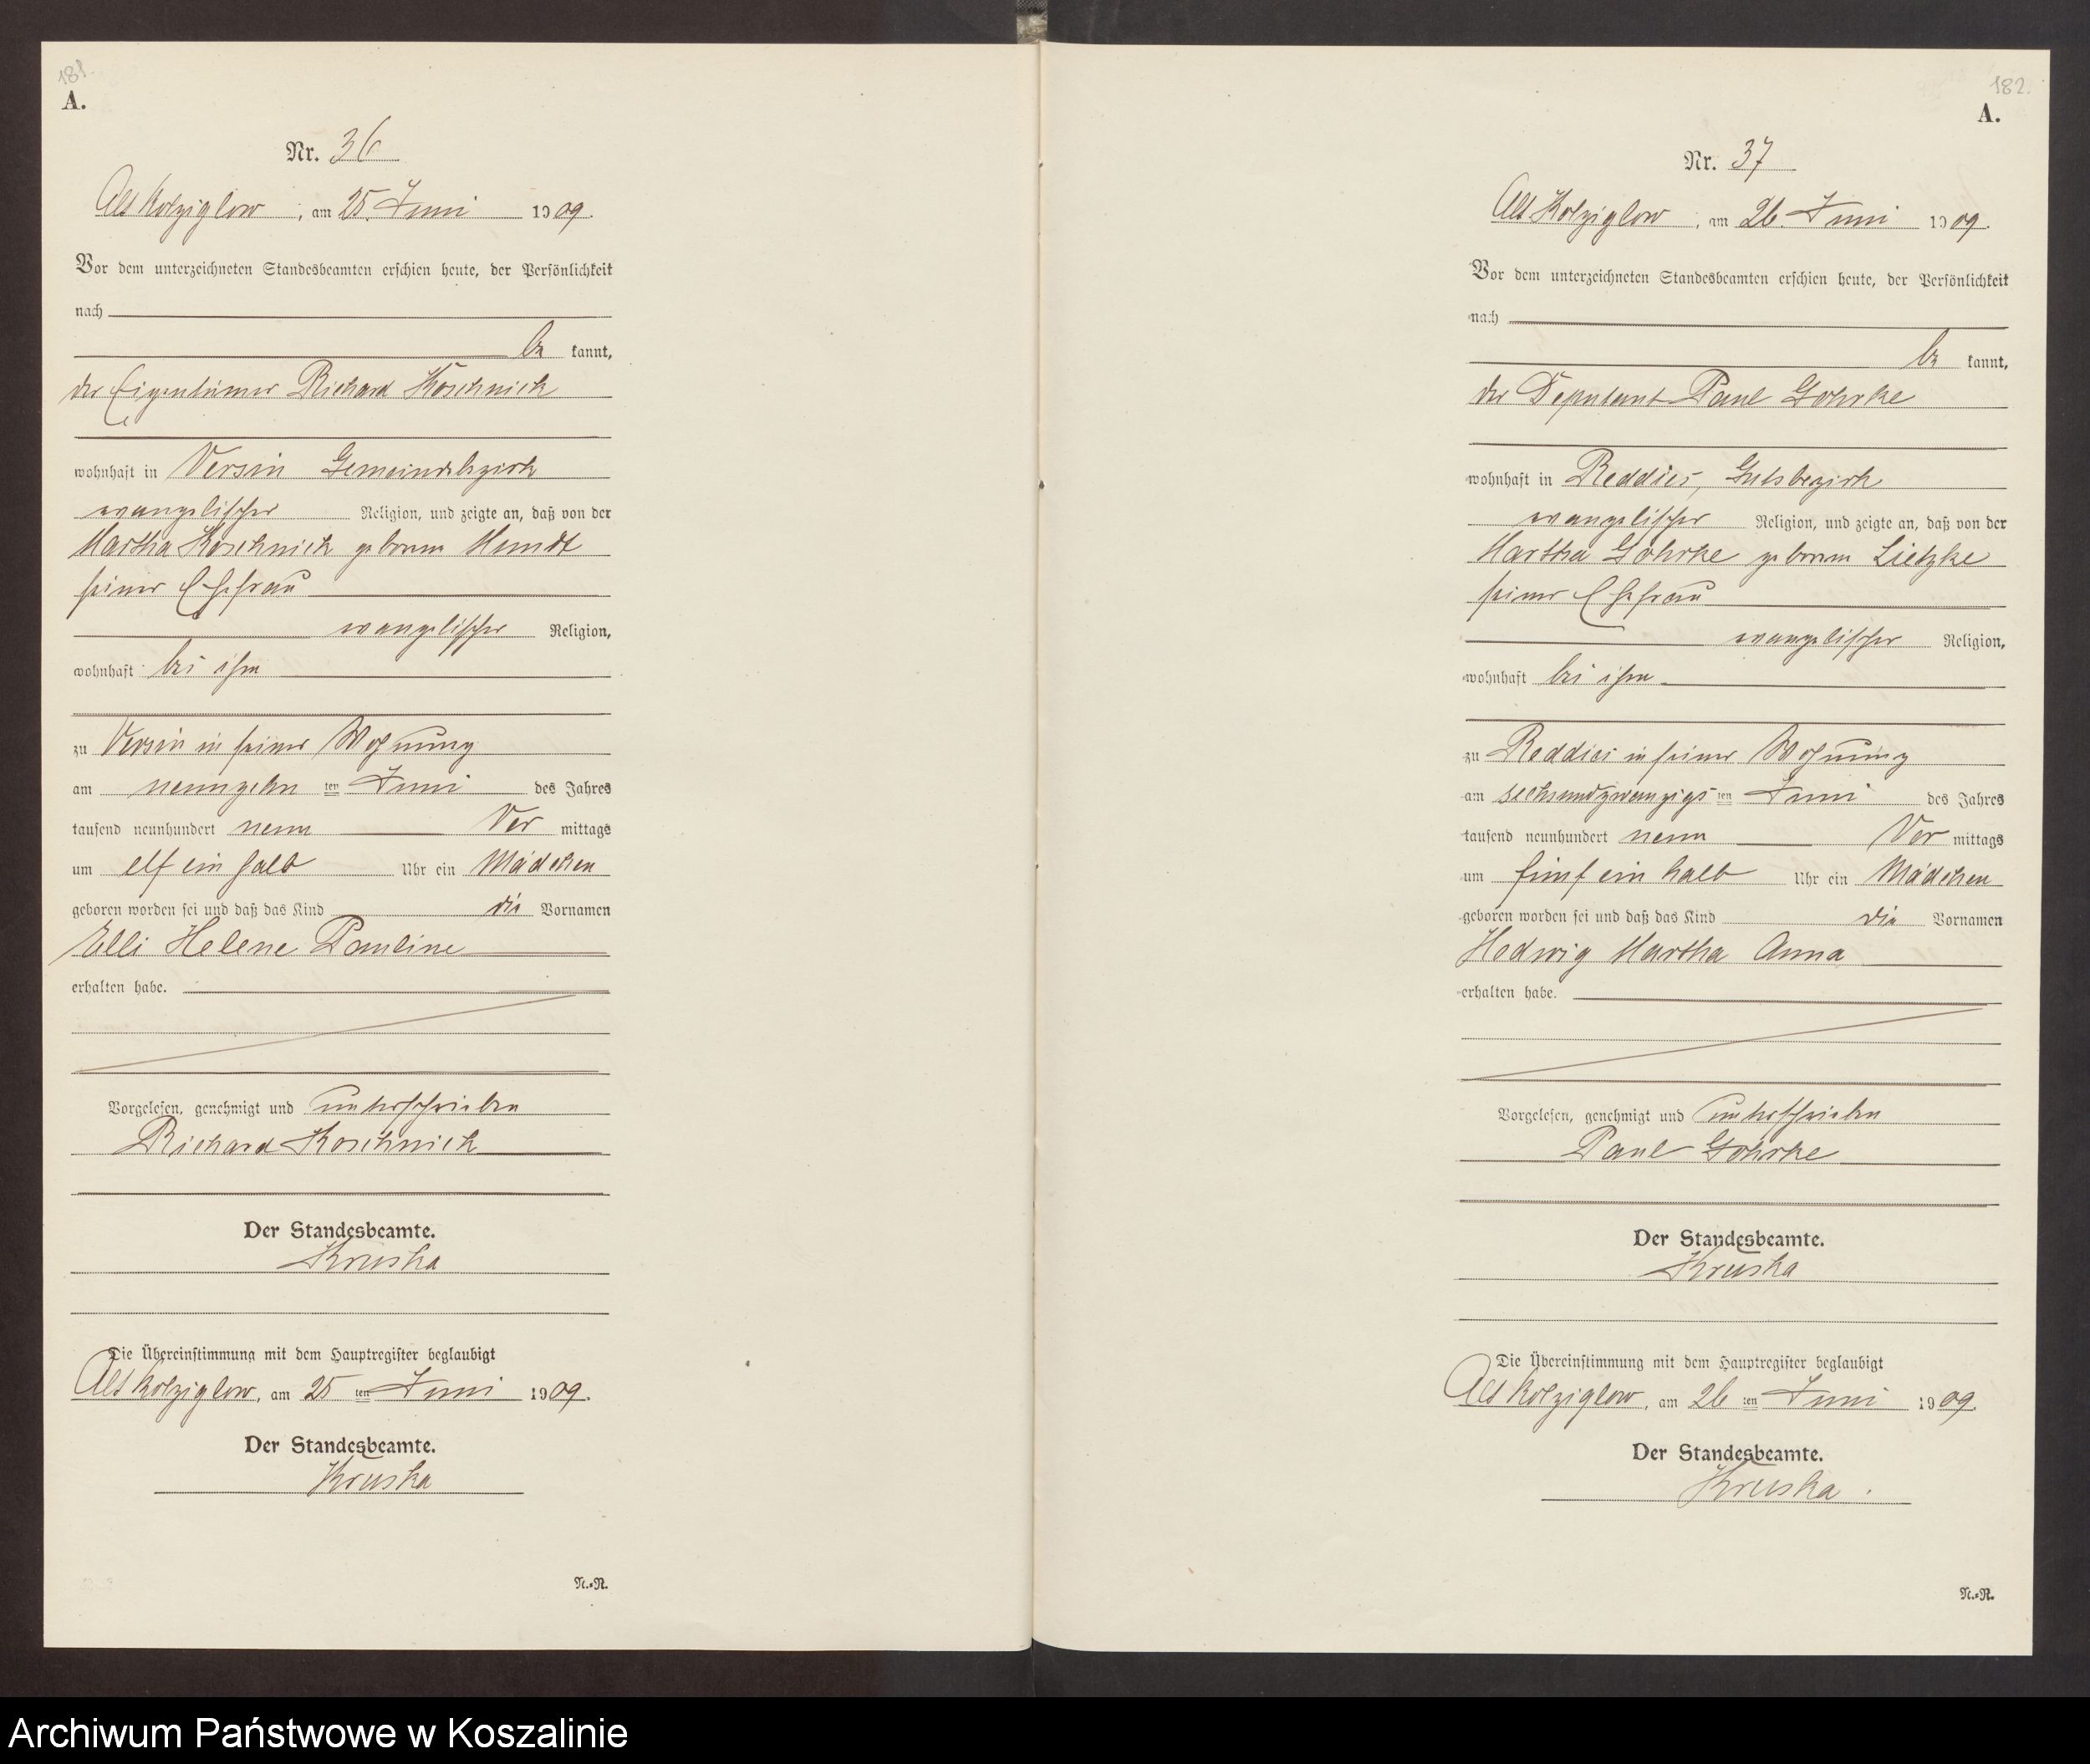 181.
A.
Nr. 36
Alt Kolziglow, am 25. Juni 1909.
Vor dem unterzeichneten Standesbeamten erschien heute, der Persönlichkeit
nach
be kannt,
der Eigentümer Richard Koschnick
wohnhaft in Versin Gemeindebezirk
evangelischer Religion, und zeigte an, daß von der
Martha Koschnick geborene Mundt
seiner Ehefrau
evangelischer Religion,
wohnhaft bei ihm
zu Versin in seiner Wohnung
am neunzehn ten Juni des Jahres
tausend neunhundert neun Vor mittags
um elf ein halb Uhr ein Mädchen
geboren worden sei und daß das Kind die Vornamen
Elli Helene Pauline
erhalten habe.
Vorgelesen, genehmigt und unterschrieben
Richard Koschnick
Der Standesbeamte.
Kruska
Die Übereinstimmung mit dem Hauptregister beglaubigt
Alt Kolziglow, am 25 ten Juni 1909.
Der Standesbeamte.
Kruska
N.-N.
182.
A.
Nr. 37
Alt Kolziglow, am 26. Juni 1909.
Vor dem unterzeichneten Standesbeamten erschien heute, der Persönlichkeit
nach
be kannt,
der Deputant Paul Göhrke
wohnhaft in Reddies, Gutsbezirk
evangelischer Religion, und zeigte an, daß von der
Martha Göhrke geborene Lietzke
seiner Ehefrau
evangelischer Religion,
wohnhaft bei ihm
zu Reddies in seiner Wohnung
am sechsundzwanzigs ten Juni des Jahres
tausend neunhundert neun Vor mittags
um fünf ein halb Uhr ein Mädchen
geboren worden sei und daß das Kind die Vornamen
Hedwig Martha Anna
erhalten habe.
Vorgelesen, genehmigt und unterschrieben
Paul Göhrke
Der Standesbeamte.
Kruska
Die Übereinstimmung mit dem Hauptregister beglaubigt
Alt Kolziglow, am 26 ten Juni 1909.
Der Standesbeamte.
Kruska.
N.-N.
Archiwum Państwowe w Koszalinie